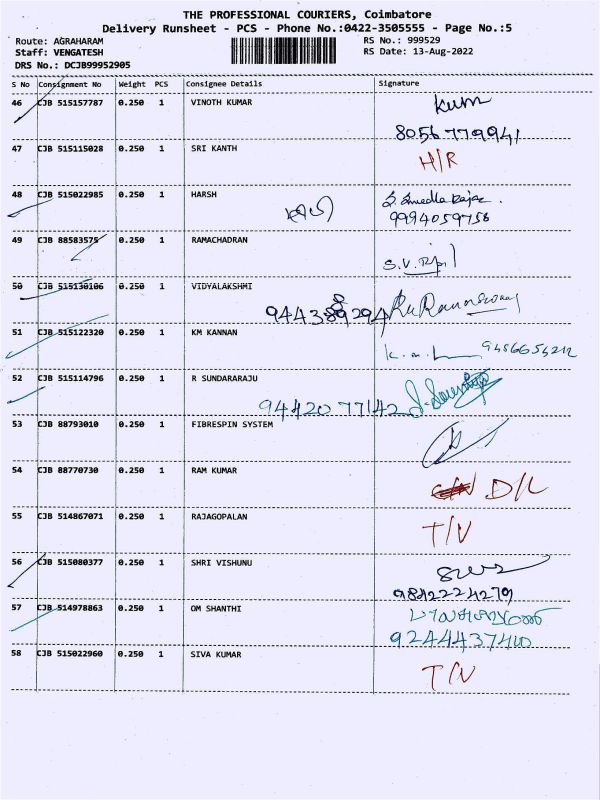 THE PROFESSIONAL COURIERS, Coimbatore
Delivery Runsheet - PCS - Phone No.:0422-3505555 - Page No.:5
Route: AGRAHARAM
Staff: VENGATESH
DRS No.: DCJB99952905
RS No.: 999529
RS Date: 13-Aug-2022
S No Consignment No Weight PCS Consignee Details Signature
46 CJB 515157787 0.250 1 VINOTH KUMAR
8056779941
47 CJB 515115028 0.250 1 SRI KANTH H/R
48 CJB 515022985 0.250 1 HARSH
9994059756
49 CJB 88583575 0.250 1 RAMACHADRAN
S.V.
50 CJB 515130106 0.250 1 VIDYALAKSHMI
51 CJB 515122320 0.250 1 KM KANNAN
k.m. 9486654212
52 CJB 515114796 0.250 1 R SUNDARARAJU
9442077142
53 CJB 88793010 0.250 1 FIBRESPIN SYSTEM
54 CJB 88770730 0.250 1 RAM KUMAR D/L
55 CJB 514867071 0.250 1 RAJAGOPALAN T/V
56 CJB 515080377 0.250 1 SHRI VISHUNU
9842224279
57 CJB 514978863 0.250 1 OM SHANTHI
9244437400
58 CJB 515022960 0.250 1 SIVA KUMAR T/V